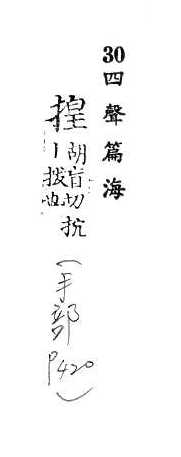 30四聲篇海
揘胡盲切抗
丨拔也
(手部
P420)